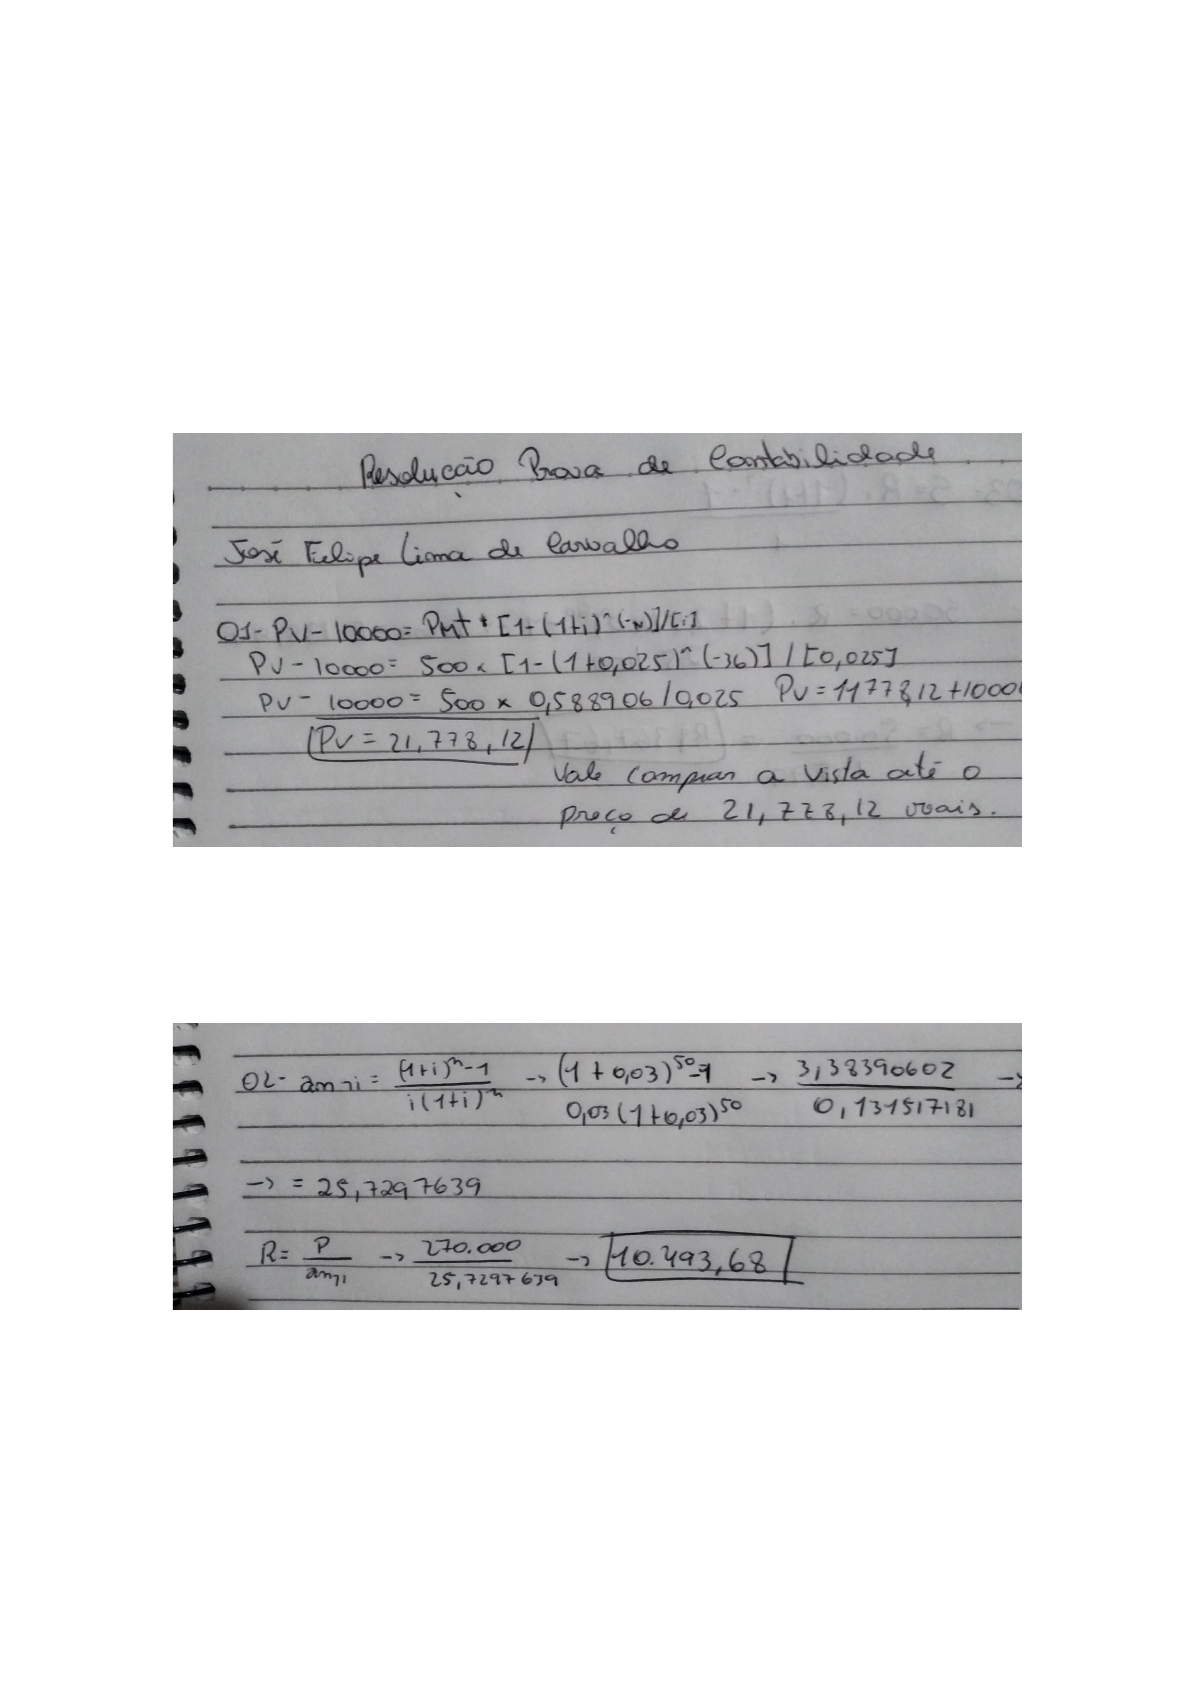 Resolução Prova de Contabilidade
José Felipe Lima de Carvalho
01- PV - 10000 = PMt * [1-(1+i)^(-N)]/[i]
PV - 10000 = 500 x [1-(1+0,025)^(-36)] / [0,025]
PV - 10000 = 500 x 0,588906/0,025 PV = 11778,12+1000
PV = 21,778,12
Vale comprar a vista até o
preço de 21,778,12 reais.
02- an¬i = (1+i)^n - 1 / i(1+i)^n -> (1+0,03)^50 - 1 / 0,03(1+0,03)^50 -> 3,38390602 / 0,131517181 ->
-> = 25,7297639
R = P / an¬i -> 270.000 / 25,7297639 -> 10.493,68